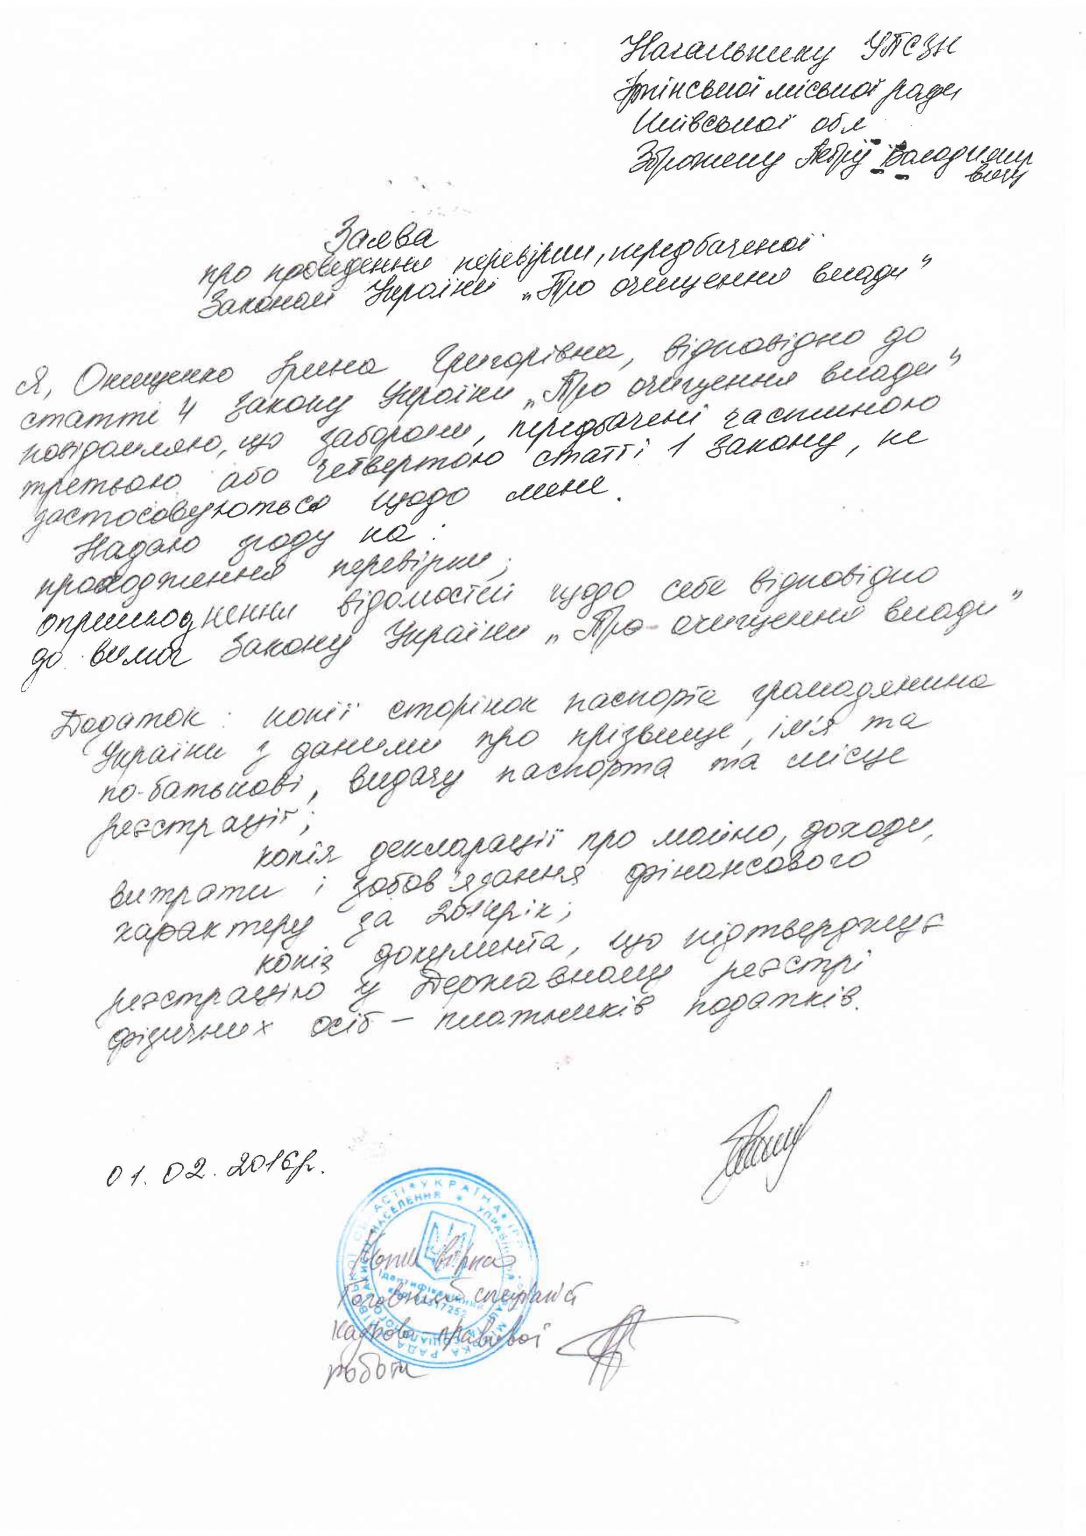 Начальнику УПСЗН
Ірпінської міської ради
Київської обл
Зброжеку Петру Володимир
вичу
Заява
про проведення перевірки, передбаченої
Законом України „Про очищення влади"
Я, Онищенко Ірина Григорівна, відповідно до
статті 4 Закону України „Про очищення влади"
повідомляю, що заборони, передбачені частиною
третьою або четвертою статті 1 Закону, не
застосовуються щодо мене.
Надаю згоду на:
проходження перевірки;
оприлюднення відомостей щодо себе відповідно
до вимог Закону України „Про очищення влади"
Додаток: копії сторінок паспорта громадянина
України з даними про прізвище, ім'я та
по-батькові, видачу паспорта та місце
реєстрації;
копія декларації про майно, доходи,
витрати і зобов'язання фінансового
характеру за 2014 рік;
копія документа, що підтверджує
реєстрацію у Державному реєстрі
фізичних осіб – платників податків.
01.02.2016р.
Копія вірна
Головний спеціаліст
кадрово-правової
роботи